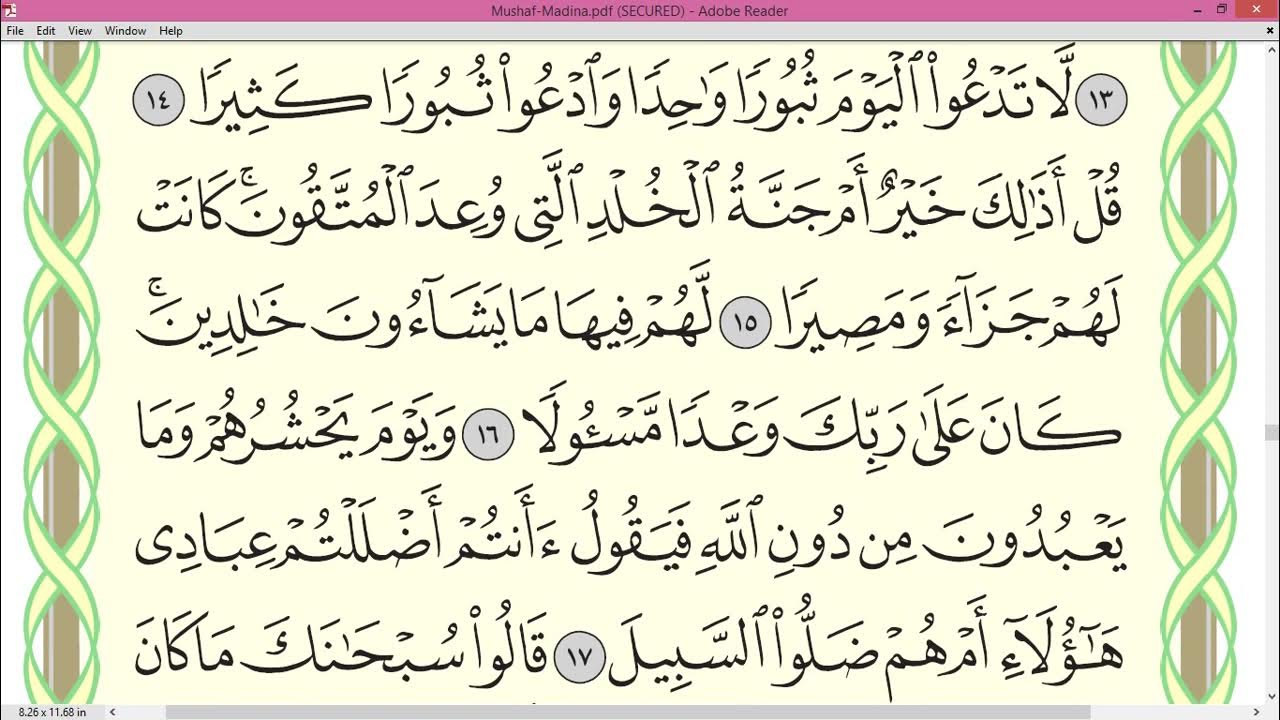 Mushaf-Madina.pdf (SECURED) - Adobe Reader
File Edit View Window Help
١٣ لَّا تَدْعُوا۟ ٱلْيَوْمَ ثُبُورًا وَٰحِدًا وَٱدْعُوا۟ ثُبُورًا كَثِيرًا ١٤
قُلْ أَذَٰلِكَ خَيْرٌ أَمْ جَنَّةُ ٱلْخُلْدِ ٱلَّتِى وُعِدَ ٱلْمُتَّقُونَ ۚ كَانَتْ
لَهُمْ جَزَآءً وَمَصِيرًا ١٥ لَّهُمْ فِيهَا مَا يَشَآءُونَ خَٰلِدِينَ ۚ
كَانَ عَلَىٰ رَبِّكَ وَعْدًا مَّسْـُٔولًا ١٦ وَيَوْمَ يَحْشُرُهُمْ وَمَا
يَعْبُدُونَ مِن دُونِ ٱللَّهِ فَيَقُولُ ءَأَنتُمْ أَضْلَلْتُمْ عِبَادِى
هَٰٓؤُلَآءِ أَمْ هُمْ ضَلُّوا۟ ٱلسَّبِيلَ ١٧ قَالُوا۟ سُبْحَٰنَكَ مَا كَانَ
8.26 x 11.68 in